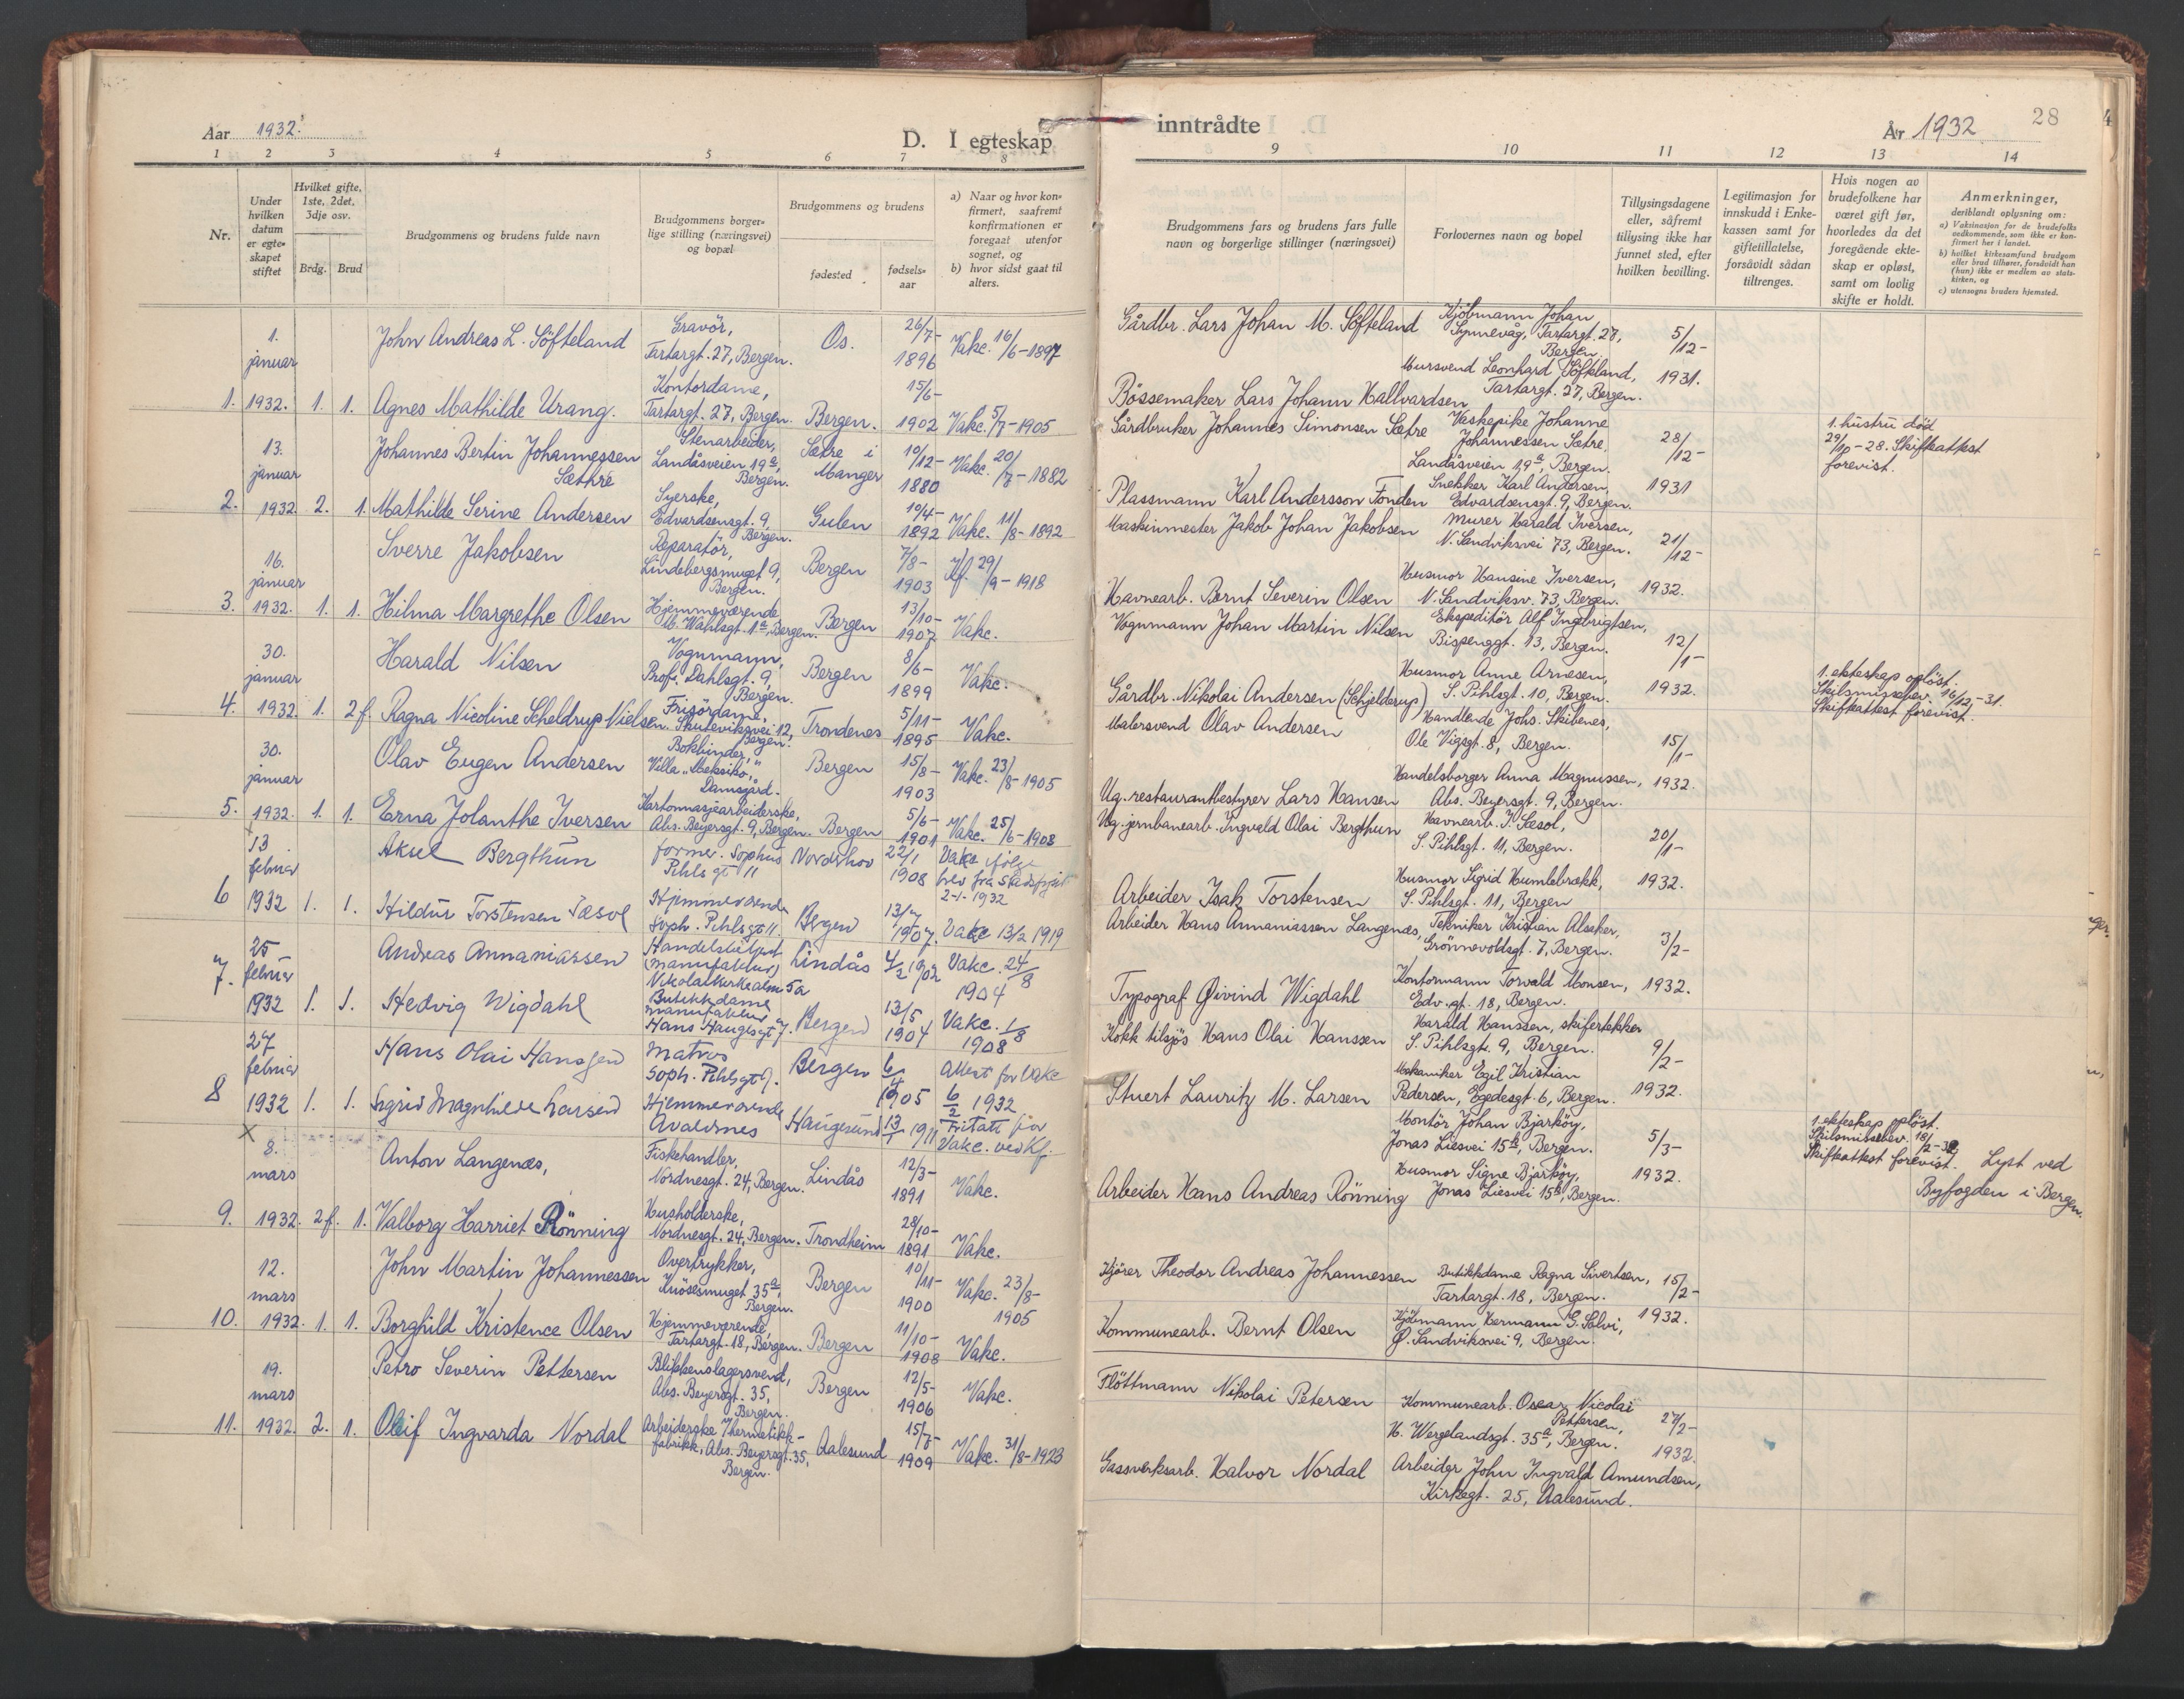 Aar 1932.
D. I egteskap
1 2 3 4 5 6 7 8
Nr.
Under hvilken datum er egteskapet stiftet
Hvilket gifte, 1ste, 2det, 3dje osv.
Brdg. Brud
Brudgommens og brudens fulde navn
Brudgommens borgerlige stilling (næringsvei) og bopæl
Brudgommens og brudens
fødested
fødselsaar
a) Naar og hvor konfirmert, saafremt konfirmationen er foregaat utenfor sognet, og
b) hvor sidst gaat til alters.
1. januar
John Andreas L. Söfteland
Gravör, Tartargt. 27, Bergen.
Os.
26/7- 1896
Vakc. 16/6-1897
1. 1932. 1. 1.
Agnes Mathilde Urang.
Kontordame, Tartargt. 27, Bergen
Bergen.
15/6- 1902
Vakc. 5/7-1905
13. januar
Johannes Bertin Johannessen Sæthre
Stenarbeider, Landåsveien 19a, Bergen.
Sætre i Manger
10/12- 1880
Vakc. 20/7-1882
2. 1932. 2. 1.
Mathilde Serine Andersen
Syerske, Edvardsensgt. 9, Bergen.
Gulen
10/4- 1892
Vakc. 11/8-1892
16. januar
Sverre Jakobsen
Reparatör, Lindebergsmuget 9, Bergen.
Bergen
7/8- 1903
Kf. 29/9-1918
3. 1932. 1. 1.
Hilma Margrethe Olsen
Hjemmeværende M. Wahlsgt. 1a, Bergen.
Bergen
13/10- 1907
Vakc.
30. januar
Harald Nilsen
Vognmann, Prof. Dahlsgt. 9, Bergen.
Bergen
8/6- 1899
Vakc.
4. 1932. 1. 2 f.
Ragna Nicoline Scheldrup Nielsen.
Frisördame, Skuteviksvei 12, Bergen.
Trondenes
5/11- 1895
Vakc.
30. januar
Olav Eugen Andersen
Bokbinder, Villa "Meksiko," Damsgård.
Bergen
15/8- 1903
Vakc. 23/8-1905
5. 1932. 1. 1.
Erna Jolanthe Iversen
Kartonnasjearbeiderske, Abs. Beyersgt. 9, Bergen.
Bergen
5/6- 1901
Vakc. 25/6-1908
13 februar
Aksel Bergthun
former. Sophus Pihlsgt 11
Norderhov
22/1 1908
Vakc ifølge brev fra 2-1-1932
6 1932 1. 1.
Hildur Torstensen Sæsol
Hjemmeværende Soph. Pihlsgt 11.
Bergen
13/7 1907.
Vakc 13/2 1919
25 februar
Andreas Annaniassen
(manufaktur) Nikolaikirkealm 5a
Lindås
4/2 1902
Vakc. 24/8 1904
7. 1932 1. 1.
Hedvig Wigdahl
Butikkdame manufaktur Hans Haugesgt 7.
Bergen
13/5 1904
Vakc. 1/8 1908
27 februar
Hans Olai Hanssen
Matros Soph. Pihlsgt 9.
Bergen
6/4 1905
Attest for Vakc 6/2 1932
8 1932 1. 1.
Sigrid Magnhilde Larsen
Hjemmeværende Avaldsnes
Haugesund
13/1 1911
Fritatt for Vakc. ved Kf.
X
8. mars
Anton Langenæs,
Fiskehandler, Nordnesgt. 24, Bergen.
Lindås
12/3- 1891
Vakc.
9. 1932. 2 f. 1.
Valborg Harriet Rönning
Husholderske, Nordnesgt. 24, Bergen.
Trondheim
28/10- 1891
Vakc.
12. mars
John Martin Johannessen
Overtrykker, Knösesmuget 35a, Bergen.
Bergen
10/11- 1900
Vakc. 23/8- 1905
10. 1932. 1. 1.
Borghild Kristence Olsen
Hjemmeværende, Tartargt. 18, Bergen.
Bergen
11/10- 1908
Vakc.
19. mars
Petro Severin Pettersen
Blikkenslagersvend, Abs. Beyersgt. 35, Bergen.
Bergen
12/5- 1906
Vakc.
11. 1932. 2. 1.
Oleif Ingvarda Nordal
Arbeiderske Hermetikkfabrikk, Abs. Beyersgt. 35, Bergen.
Aalesund
15/7- 1909
Vakc. 31/8-1923
inntrådte
År 1932
28
9 10 11 12 13 14
Brudgommens fars og brudens fars fulle navn og borgerlige stillinger (næringsvei)
Forlovernes navn og bopel
Tillysingsdagene eller, såfremt tillysing ikke har funnet sted, efter hvilken bevilling.
Legitimasjon for innskudd i Enkekassen samt for giftetillatelse, forsåvidt sådan tiltrenges.
Hvis nogen av brudefolkene har været gift før, hvorledes da det foregående ekteskap er opløst, samt om lovlig skifte er holdt.
Anmerkninger, deriblandt oplysning om:
a) Vaksinasjon for de brudefolks vedkommende, som ikke er konfirmert her i landet.
b) hvilket kirkesamfund brudgom eller brud tilhører, forsåvidt han (hun) ikke er medlem av statskirken, og
c) utensogns bruders hjemsted.
Gårdbr. Lars Johan M. Söfteland
Kjöbmann Johan Synnevåg, Tartargt. 27, Bergen,
5/12-
Mursvend Leonhard Söfteland, Tartargt. 27, Bergen.
1931.
Bössemaker Lars Johann Hallvardsen
Gårdbruker Johannes Simonsen Sætre
Vaskepike Johanne Johannessen Sætre, Landåsveien 19a, Bergen.
28/12-
1. hustru död 29/10-28. Skifteattest forevist.
Plassmann Karl Andersson Fonden
Snekker Karl Andersen, Edvardsensgt. 9, Bergen.
1931
Maskinmester Jakob Johan Jakobsen
Murer Harald Iversen, N. Sandviksvei 73, Bergen.
21/12-
Havnearb. Bernt Severin Olsen
Husmor Hansine Iversen, N. Sandviksv. 73, Bergen.
1932.
Vognmann Johan Martin Nilsen
Ekspeditör Alf Ingebrigtsen, Bispenggt. 13, Bergen.
12/1-
Gårdbr. Nikolai Andersen (Schjelderup)
Husmor Anne Arnesen, S. Pihlsgt. 10, Bergen.
1932.
1. ekteskap oplöst. Skilsmissebev. 16/12-31. Skifteattest forevist.
Malersvend Olav Andersen
Handlende Johs. Skibenes, Ole Vigsgt. 8, Bergen.
15/1-
Ug. restaurantbestyrer Lars Hansen
Handelsborger Anna Magnussen, Abs. Beyersgt. 9, Bergen.
1932.
Ug. jernbanearb. Ingvald Olai Bergthun
Havnearb. I. Sæsol, S. Pihlsgt. 11, Bergen.
20/1-
Arbeider Isak Torstensen
Husmor Sigrid Humlebrekk, S. Pihlsgt. 11, Bergen
1932.
Arbeider Hans Annaniassen Langenæs,
Tekniker Kristian Alsaker, Grönnevoldsgt. 7, Bergen.
3/2-
Typograf Øivind Wigdahl
Kontormann Torvald Monsen, Edv. gt. 18, Bergen.
1932.
Kokk tilsjös Hans Olai Hanssen
Harald Hanssen, skifertekker S. Pihlsgt. 9, Bergen.
9/2-
Stuert Lauritz M. Larsen
Mekaniker Egil Kristian Pedersen, Egedesgt. 6, Bergen.
1932.
Montör Johan Bjarköy, Jonas Liesvei 15b, Bergen.
5/3-
1. ekteskap oplöst. Skilsmissebev. 18/2-32 Skifteattest forevist.
Lyst ved Byfogden i Bergen.
Arbeider Hans Andreas Rönning
Husmor Signe Bjarköy, Jonas Liesvei 15b, Bergen.
1932.
Kjörer Theodor Andreas Johannessen
Butikkdame Ragna Sivertsen, Tartargt. 18, Bergen.
15/2-
Kommunearb. Bernt Olsen
Kjöbmann Hermann G. Solvi, Ø. Sandviksvei 9, Bergen.
1932.
Flöttmann Nikolai Petersen
Kommunearb. Oscar Nicolai Pettersen, H. Wergelandsgt. 35a, Bergen.
27/2-
1932.
Gassverksarb. Halvor Nordal
Arbeider John Ingvald Amundsen, Kirkegt. 25, Aalesund.